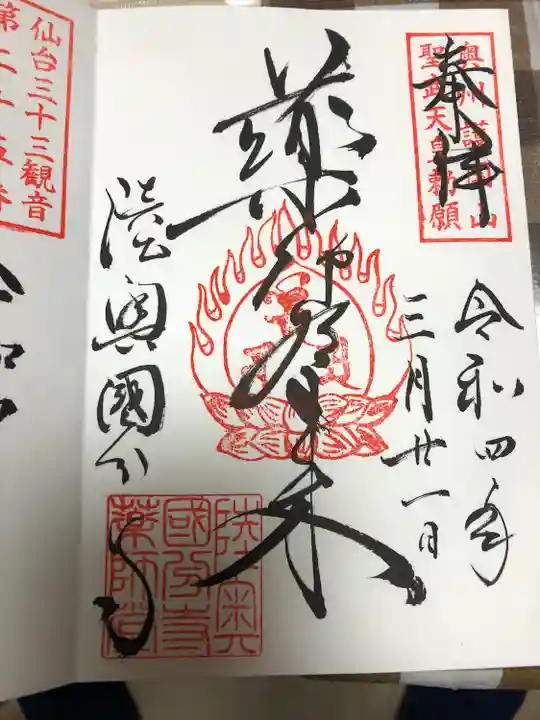 奉拝
奥州護国山
聖武天皇勅願
令和四年
三月廿一日
薬師如来
陸奥國分寺
陸奥
國分寺
薬師堂
仙台三十三観音
第二十五番
令和四